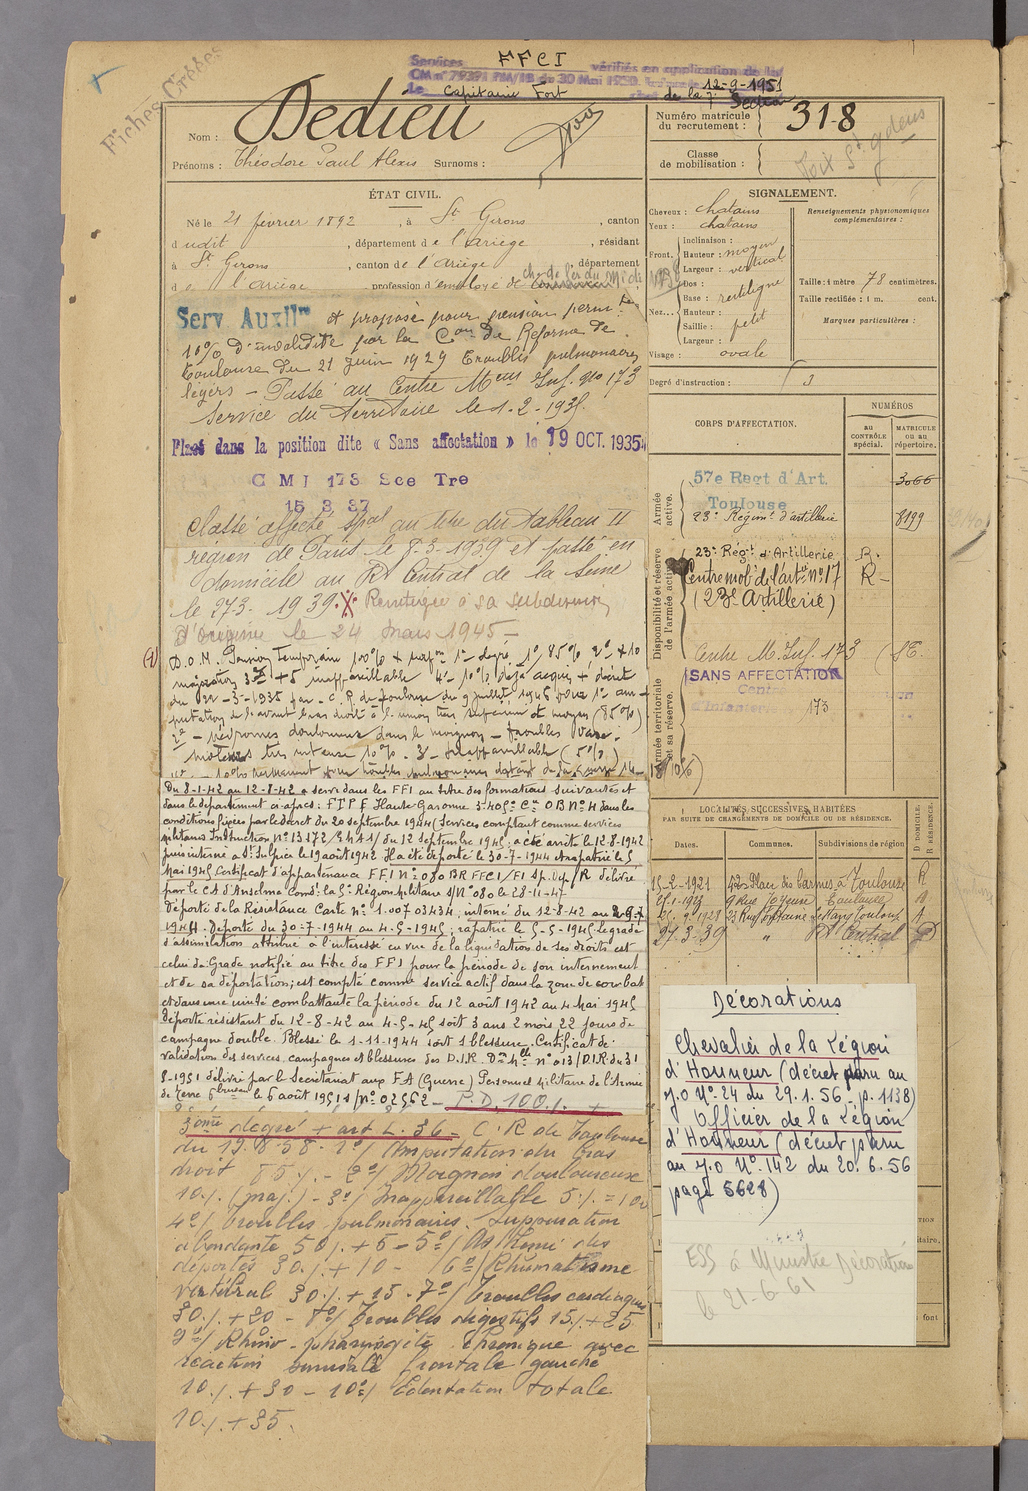 Fiches Créées
Services FFCI vérifiés en application de la
CM n° 79391 PM/1B du 30 Mai 1950
Le Capitaine Fort 12-9-1951
de la 7e Section
Nom : Dedieu
Prénoms : Théodore Paul Alexis Surnoms :
Numéro matricule
du recrutement : 318
Classe
de mobilisation :
ÉTAT CIVIL.
Né le 21 février 1892, à St Girons, canton
dudit, département de l'Ariège, résidant
à St Girons, canton de l'Ariège, département
de l'Ariège, profession d'employé de ch. de fer du Midi
SIGNALEMENT.
Cheveux : chatains
Yeux : chatains
Front. Inclinaison :
Hauteur : moyen
Largeur : vertical
Nez... Dos :
Base : rectiligne
Hauteur :
Saillie : petit
Largeur :
Visage : ovale
Renseignements physionomiques
complémentaires :
Taille : 1 mètre 78 centimètres.
Taille rectifiée : 1 m. cent.
Marques particulières :
Degré d'instruction : 3
Serv Auxil re et proposé pour pension perm.te
10% d'invalidité par la Con de Réforme de
Toulouse du 21 juin 1929 Troubles pulmonaires
légers – Passé au Centre Meur Inf. no 173
service du Territoire le 1-2-193
Placé dans la position dite « Sans affectation » le 19 OCT. 1935
C M I 173 Sce Tre
15 3 37
Classé affecté spal au titre du tableau II
région de Paris le 8-3-1939 et passé en
domicile au Rt Central de la Seine
le 27-3-1939. Réintégré à sa subdivision
d'Origine le 24 Mars 1945 –
D.O.M. Pension Temporaire 100% + surpn 1er degré 1°/ 85% 2°/ +10
+5 inappareillable 4°- 10% déjà acquis + décret
du C.R. de Toulouse du 9 juillet 1946 pour 1° am-
putation de l'avant bras droit à l'union tiers supérieur et moyen (85%)
2° – névromes douloureux dans le moignon – troubles vaso-
moteurs très intense 10% - 3° – inappareillable (5%)
CORPS D'AFFECTATION.
NUMÉROS
au
CONTRÔLE
spécial.
MATRICULE
ou au
répertoire.
Armée
active.
57e Regt d'Art.
Toulouse
3066
23e Régimt d'artillerie 8199
Disponibilité et réserve
de l'armée active.
23e Régt d'Artillerie R.
Centre mobe de l'arte n° 17 R –
(23e Artillerie)
Armée territoriale
et sa réserve.
Centre M. Inf. 173
SANS AFFECTATION
Centre
d'Infanterie 173
Du 8-1-42 au 12-8-42 a servi dans les FFI au titre des formations suivantes et
dans le département ci-après : FTPF Haute Garonne 3405e Cie O B N° 4 dans les
conditions fixées par le décret du 20 septembre 1944 (Services comptant comme services
militaires Instruction n° 13172 du 12 septembre 1945; a été arrêté le 12-8-1942
puis interné à St Sulpice le 19 août 1942. Il a été déporté le 30-7-1944 et rapatrié le 5
Mai 1945 Certificat d'appartenance FFI N° 080 BR FFCI/FI Sp. Dép/R délivré
par le CA d'Anselme Comdt la 5e Région Militaire s/N° 080 le 28-11-47
Déporté de la Résistance Carte n° 1.007 03434, interné du 12-8-42 au 29-7
1944. Déporté du 30-7-1944 au 4-5-1945; rapatrié le 5-5-1945 Le grade
d'assimilation attribué à l'intéressé en vue de la liquidation de ses droits est
celui du Grade notifié au titre des FFI pour la période de son internement
et de sa déportation; est compté comme service actif dans la zone de combat
et dans une unité combattante la période du 12 août 1942 au 4 Mai 1945
déporté résistant du 12-8-42 au 4-5-45 soit 3 ans 2 mois 22 jours de
campagne double. Blessé le 1-11-1944 soit 1 blessure. Certificat de
validation des services, campagnes et blessures des D.I.R. n° 013/D.I.R. du 31
8-1951 délivré par le Secrétariat aux F.A. (Guerre) Personnel Militaire de l'Armée
de Terre 6e bureau le 6 août 1951 s/n° 02562 – P.D. 100% +
3ème degré + art L. 36 – C.R de Toulouse
du 19.8.58 – 1°/ Amputation du bras
droit 85% – 2°/ Moignon douloureux
10% (maj.) – 3°/ Inappareillable 5% = 100
4°/ Troubles pulmonaires. Suppuration
abondante 50% + 5 – 5°/ Asthénie des
déportés 30% + 10 – 6°/ Rhumatisme
vertébral 30% + 15 – 7°/ Troubles cardiaques
30% + 20 – 8°/ Troubles digestifs 15% + 25
9°/ Rhino-pharyngite chronique avec
réaction sinusale frontale gauche
10% + 30 – 10°/ Edentation totale
10% + 35.
LOCALITÉS SUCCESSIVES HABITÉES
PAR SUITE DE CHANGEMENTS DE DOMICILE OU DE RÉSIDENCE.
Dates. Communes. Subdivisions de région
D DOMICILE.
R RÉSIDENCE.
15-2-1921 42 Place des Carmes à Toulouse R
9 Rue Joyeuse Toulouse R
Toulouse
27-3-39 " Rt Central D
Décorations
Chevalier de la Légion
d'Honneur (décret paru au
J.O N°. 24 du 29.1.56 - p. 1138)
Officier de la Légion
d'Honneur (décret paru
au J.O N°. 142 du 20.6.56
page 5628)
ESS à Ministre Décoration
le 21-6-61